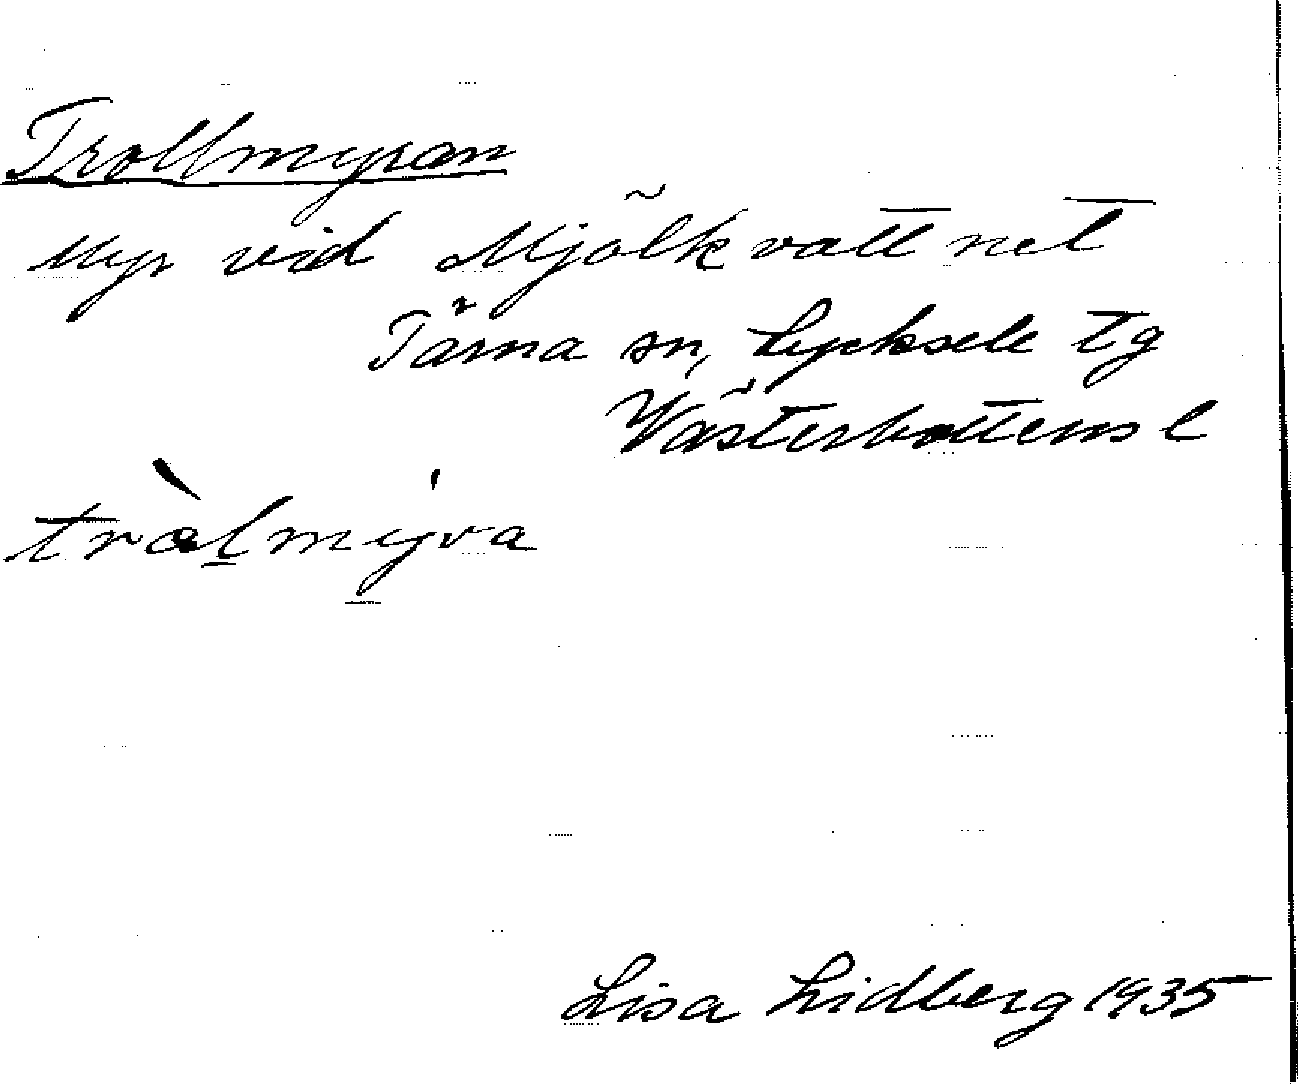 Trollmyran
Myr vid Mjölkvattnet
Tärna sn, Lycksele tg
Västerbottens l
tràlmýra
Lisa Lidberg 1935